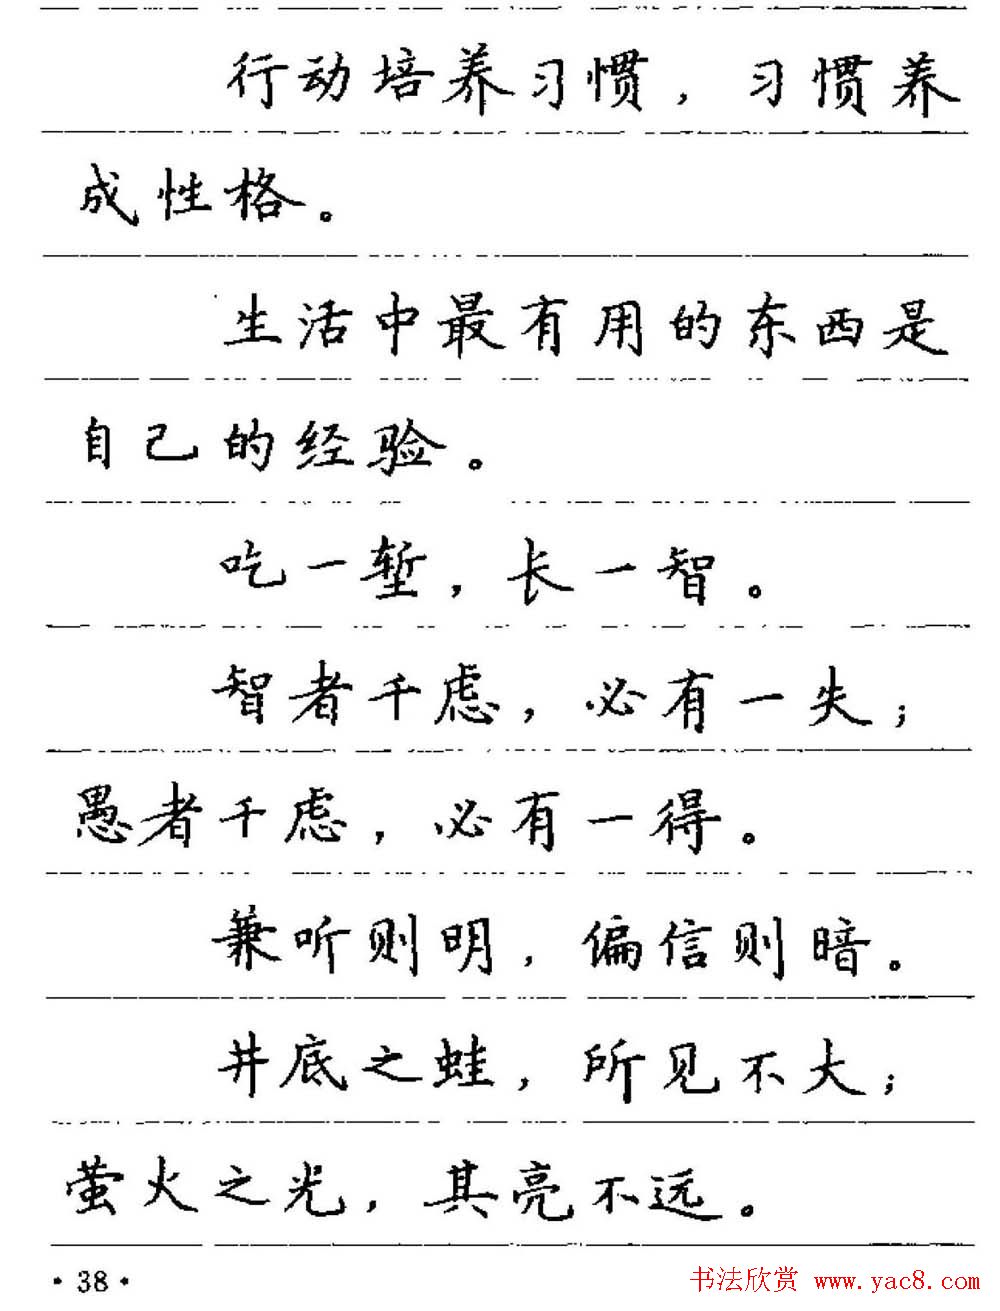 行动培养习惯，习惯养
成性格。
生活中最有用的东西是
自己的经验。
吃一堑，长一智。
智者千虑，必有一失；
愚者千虑，必有一得。
兼听则明，偏信则暗。
井底之蛙，所见不大；
萤火之光，其亮不远。
·38·
书法欣赏 www.yac8.com